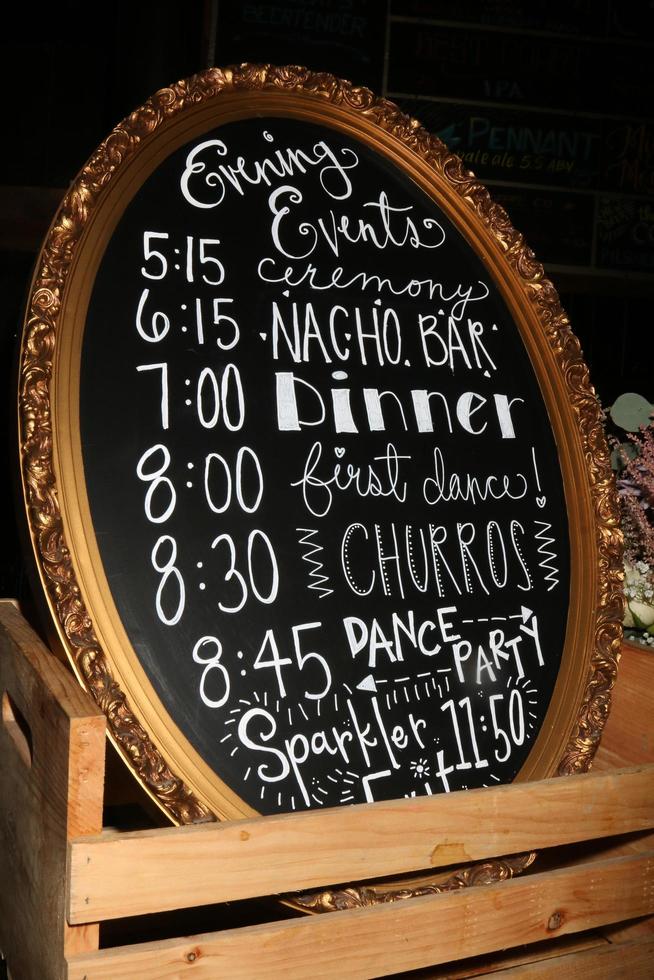 BEERTENDER
IPA
PENNANT
ale 5.5 ABV
Evening
Events
5:15 ceremony
6:15 NACHO BAR
7:00 Dinner
8:00 first dance!
8:30 CHURROS
8:45 DANCE PARTY
Sparkler 11:50
Exit